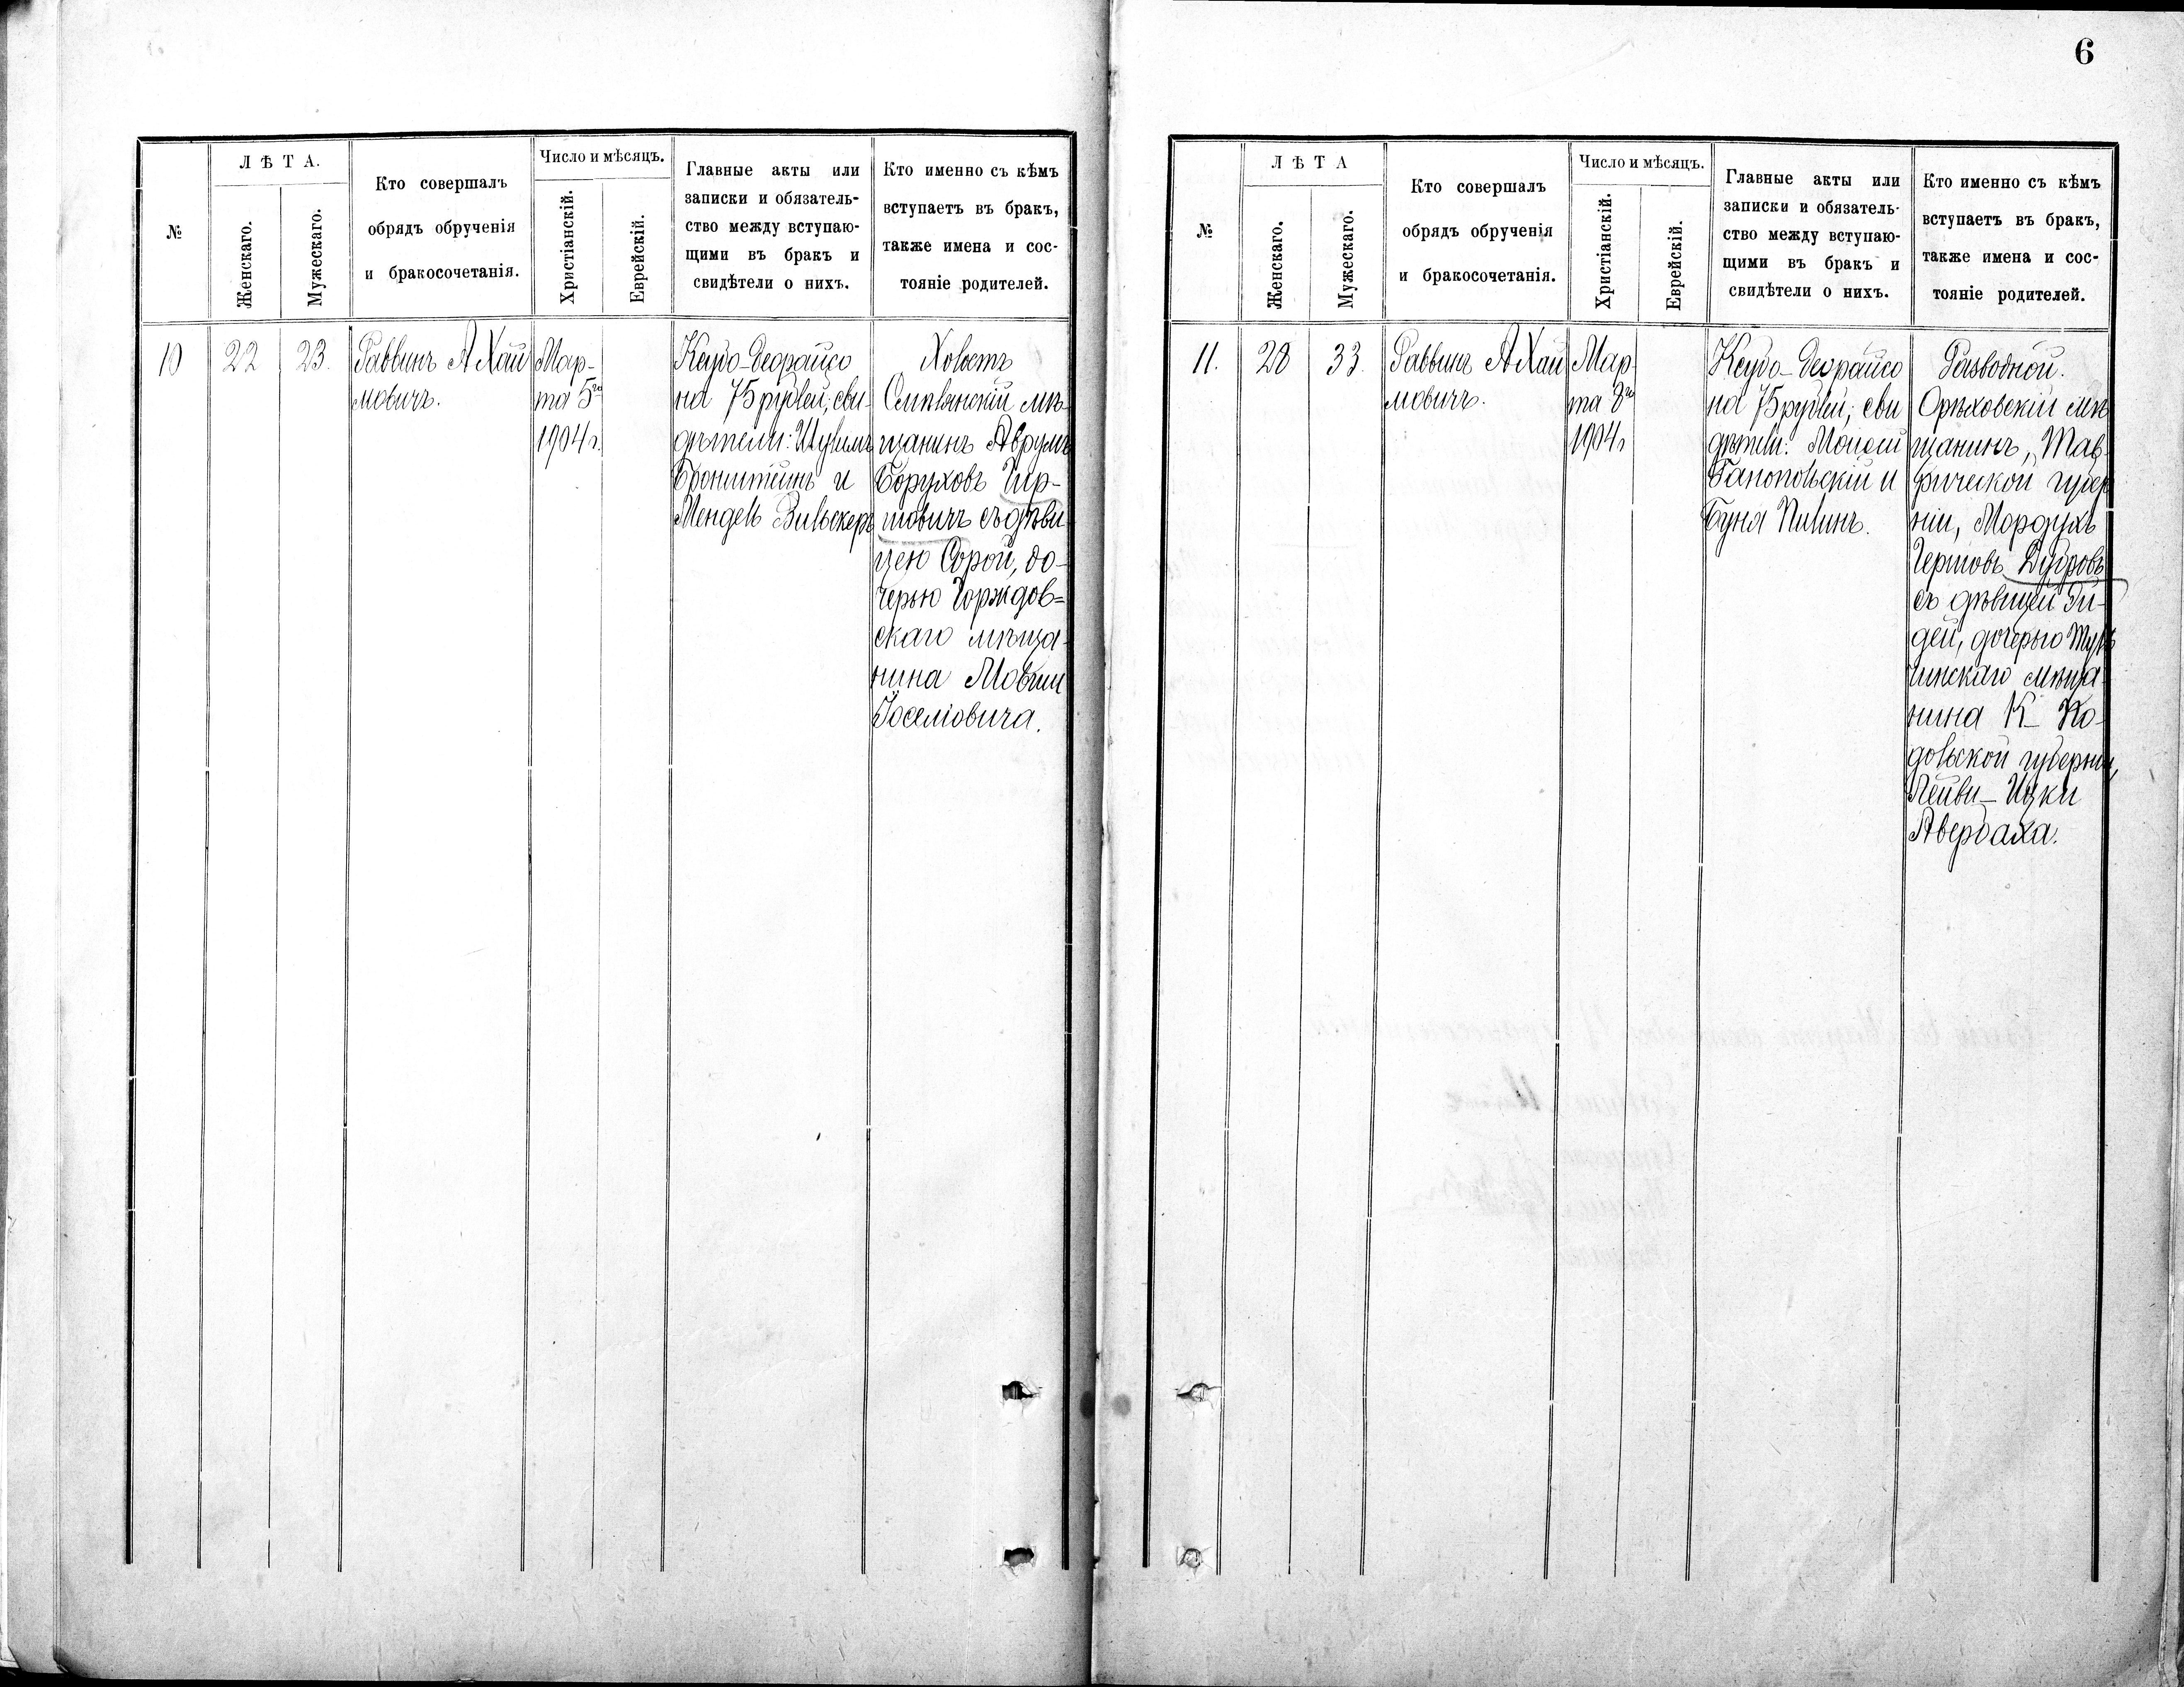 №
Л Ѣ Т А.
Женскаго.
Мужескаго.
Кто совершалъ
обрядъ обрученія
и бракосочетанія.
Число и мѣсяцъ.
Христіанскій.
Еврейскій.
Главные акты или
записки и обязатель-
ство между вступаю-
щими въ бракъ и
свидѣтели о нихъ.
Кто именно съ кѣмъ
вступаетъ въ бракъ,
также имена и сос-
тояніе родителей.
10
22
23.
Раввинъ А Хаи
мовичъ.
Мар-
та 5го
1904 г.
Ксубо-Деорайсо
на 75 рублей; сви-
дѣтели:
Бронштейнъ и
Мендель Вильскеръ
Холостъ
мѣ-
щанинъ Аврумъ
Боруховъ Гир-
шовичъ съ дѣви-
цею Сорой, до-
черью Горждов=
скаго мѣща-
нина Мовши
Іоселіовича.
6
№
Л Ѣ Т А
Женскаго.
Мужескаго.
Кто совершалъ
обрядъ обрученія
и бракосочетанія.
Число и мѣсяцъ.
Христіанскій.
Еврейскій.
Главные акты или
записки и обязатель-
ство между вступаю-
щими въ бракъ и
свидѣтели о нихъ.
Кто именно съ кѣмъ
вступаетъ въ бракъ,
также имена и сос-
тояніе родителей.
11.
28
33.
Раввинъ А Хаи
мовичъ.
Мар-
та 8го
1904 г
Ксубо-Деорайсо
на 75 рублей; сви
дѣтели: Мойсей
и
Буня
Разводной.
Орѣховскій мѣ
щанинъ, Тав-
рической губер
ніи, Мордухъ
Гершовъ Дубровъ
съ дѣвицей Ги-
дей, дочерью Туль
чинскаго мѣща-
нина К- По-
дольской губерніи,
Лейви-Ицки
Авербаха.